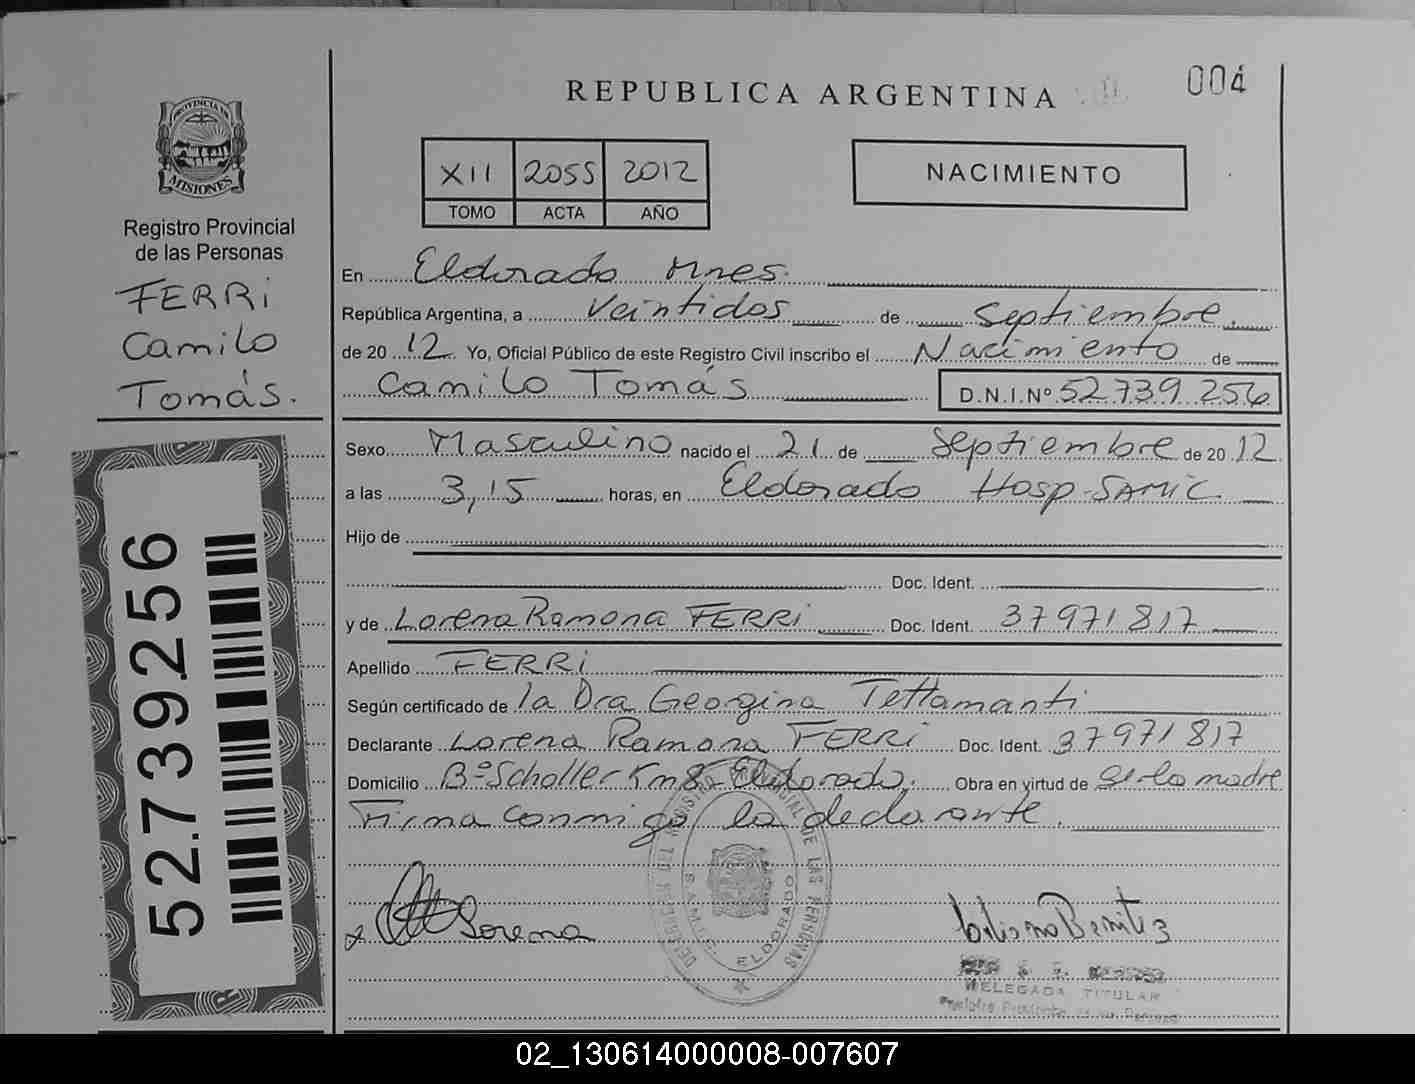 004
REPUBLICA ARGENTINA
PROVINCIA DE
MISIONES
Registro Provincial
de las Personas
FERRi
Camilo
Tomás.
52.739.256
XII 2055 2012
TOMO ACTA AÑO
NACIMIENTO
En Eldorado Mnes.
República Argentina, a Veintidos de Septiembre.
de 20 12. Yo, Oficial Público de este Registro Civil inscribo el Nacimiento de
Camilo Tomás D.N.I.Nº 52.739.256
Sexo Masculino nacido el 21 de Septiembre de 20 12
a las 3,15 horas, en Eldorado Hosp-SAMIC
Hijo de
Doc. Ident.
y de Lorena Ramona FERRi Doc. Ident. 37971817
Apellido FERRi
Según certificado de la Dra Georgina Tettamanti
Declarante Lorena Ramona FERRi Doc. Ident. 37971817
Domicilio Bº Scholler Km 8- Eldorado. Obra en virtud de ser la madre
Firma conmigo la declarante.
Lorena
DE LAS PERSONAS
ELDORADO
DELEGADA TITULAR
02_130614000008-007607